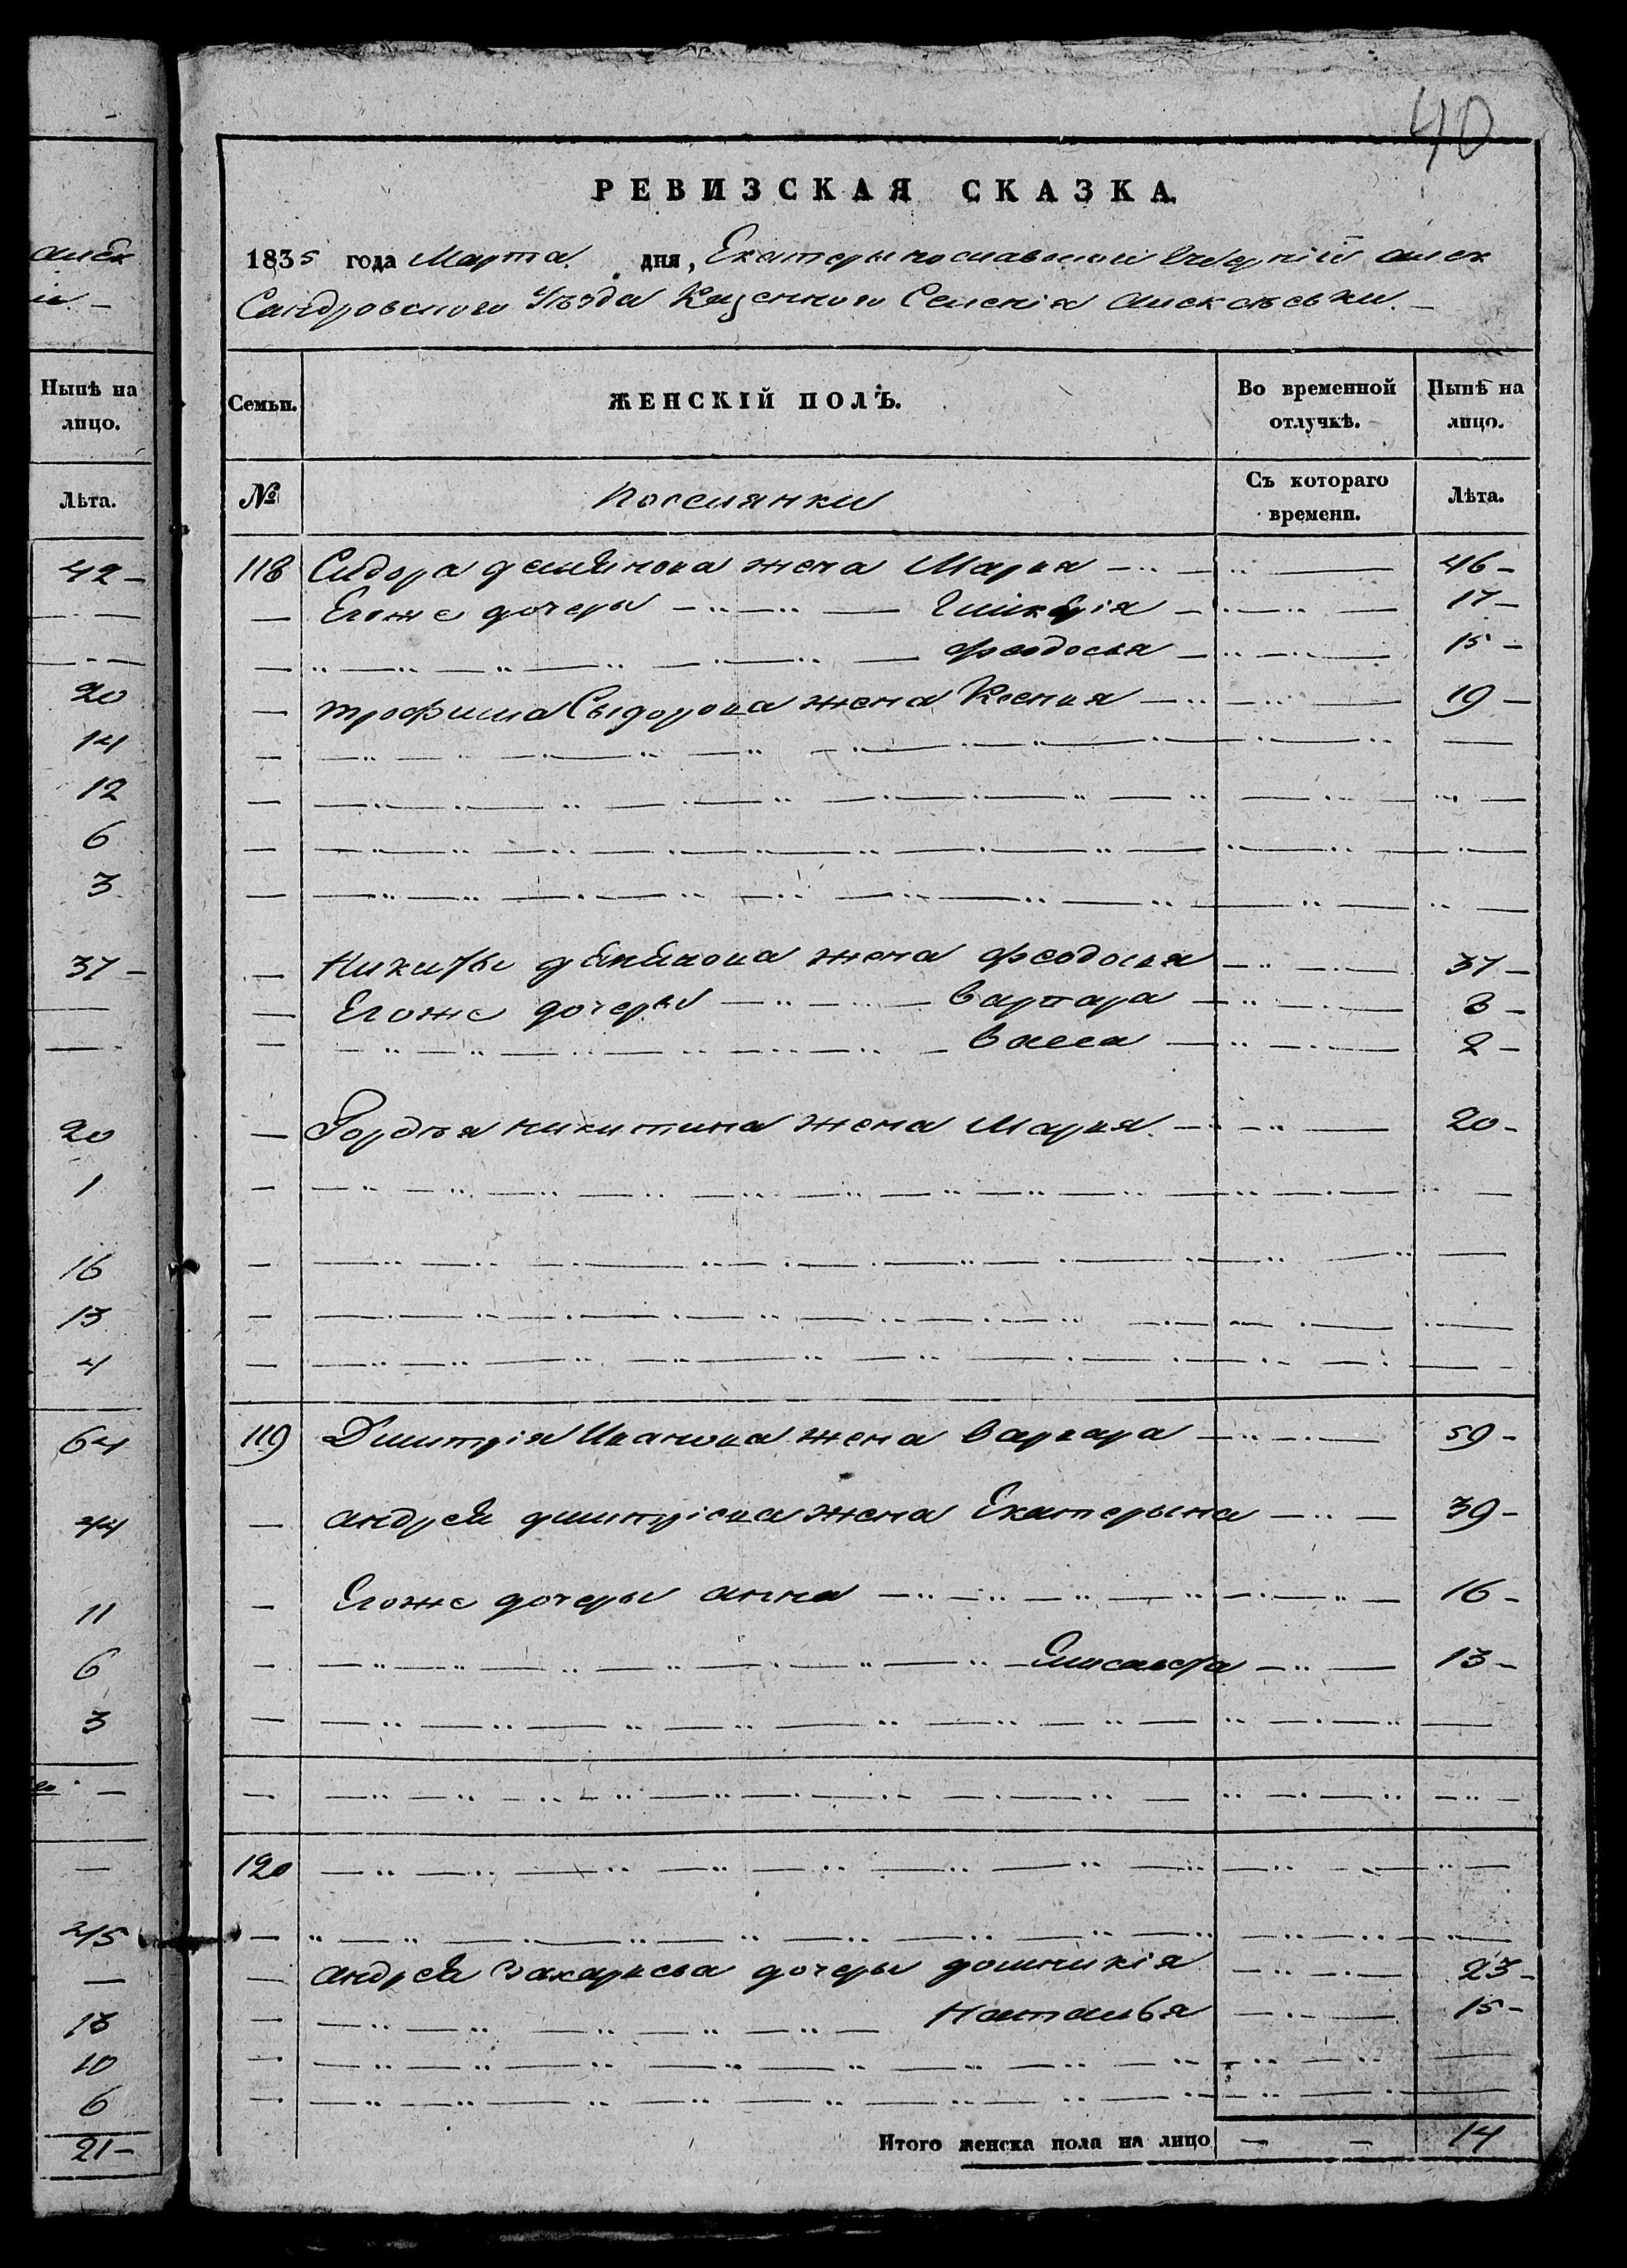 40
РЕВИЗСКАЯ СКАЗКА.
1835 года Марта. дня, Екатеринославской Губерніи алек
Сандровскаго Уѣзда Казеннаго Селенія алексѣевки.
алек
Нынѣ на
лицо.
Лѣта.
42
20
14
12
6
3
37
20
1
16
13
4
64
44
11
6
3
45
13
10
6
21
Семьи.
ЖЕНСКІЙ ПОЛЪ.
Во временной
отлучкѣ.
Нынѣ на
лицо.
№
поселянки
Съ котораго
времени.
Лѣта.
118 Сидора жена Мария 46
Егоже дочеры 17
феодосья 15
трофима Сыдорова жена Ксения 19
Никиты жена феодосия 37
Егоже дочеры варвара 3
васса 2
Гордѣя никитина жена Мария. 20
119 Димитрія Иванова жена варвара 59
андрея димитріева жена Екатерына 39
Егоже дочеры анна 16
Елисавета 13
120
андрея захарьева дочеры домникія 23
Наталья 15
Итого женска пола на лицо 14